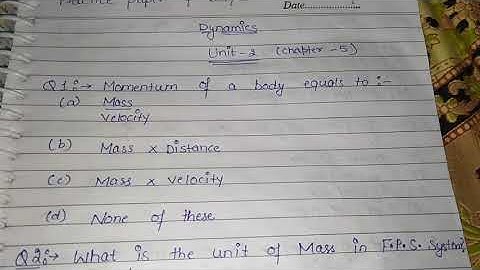 Practice paper of
Date....................
Dynamics
Unit-2 (Chapter-5)
Q1:→ Momentum of a body equals to :-
(a) Mass
Velocity
(b) Mass x Distance
(c) Mass x Velocity
(d) None of these
Q2:→ What is the unit of Mass in F.P.S. System